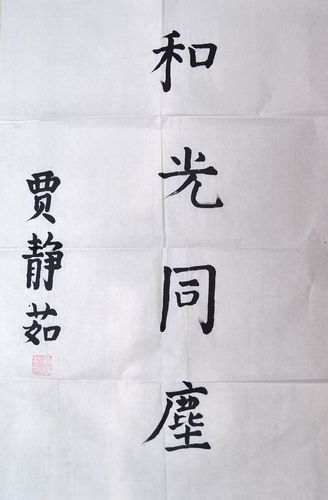 和光同塵
贾静茹